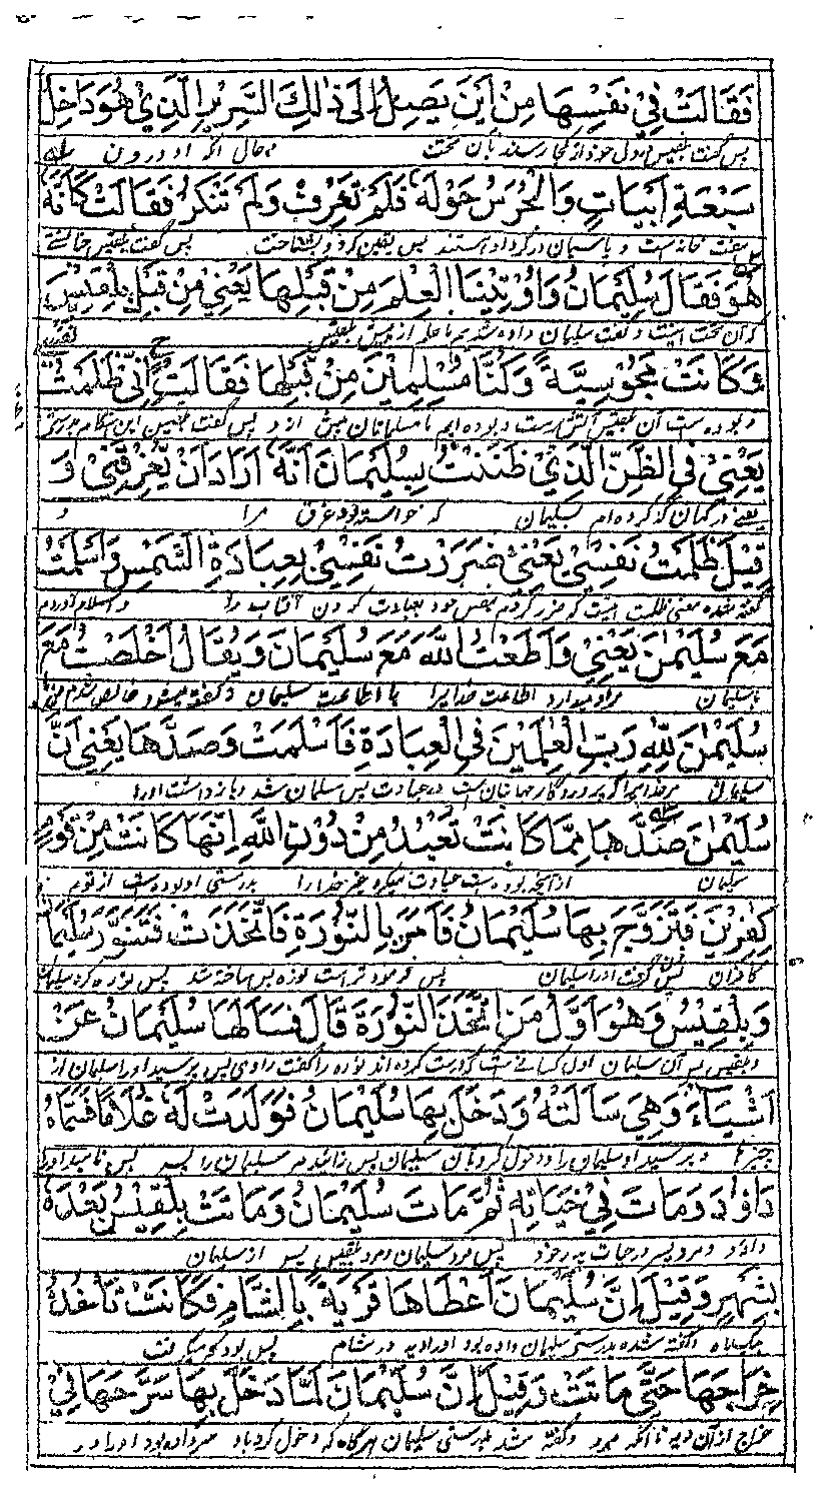 فَقَالَتْ فِيْ نَفْسِهَا مِنْ اَيْنَ يَصِلُ اِلَى ذٰلِكَ السَّرِيْرِ الَّذِيْ هُوَ دَاخِلَ
پس گفت بلقیس در دل خود از کجا رسند بآن تخت حال آنکه او درون
سَبْعَةِ اَبْيَاتٍ وَالْحُرَسُ حَوْلَهٗ فَلَمْ تَعْرِفْ وَلَمْ تُنْكِرْ فَقَالَتْ كَاَنَّهٗ
هفت خانه است و پاسبان در گرد او هستند پس یقین نکرد و نشناخت پس گفت بلقیس
هُوَ فَقَالَ سُلَيْمَانُ وَاُوْتِيْنَا الْعِلْمَ مِنْ قَبْلِهَا يَعْنِيْ مِنْ قَبْلِ بِلْقِيْسَ
که آن تخت است و گفت سلیمان داده شدیم ما علم از پیش بلقیس
وَكَانَتْ مَجُوْسِيَّةً وَكُنَّا مُسْلِمِيْنَ مِنْ قَبْلِهَا فَقَالَتْ اِنِّيْ ظَلَمْتُ
و بوده است آن بلقیس آتش پرست و بوده ایم ما مسلمانان پیش از و پس گفت بلقیس
يَعْنِيْ فِي الظَّنِّ الَّذِيْ ظَنَنْتُ بِسُلَيْمَانَ اَنَّهٗ اَرَادَ اَنْ يُغْرِقَنِيْ وَ
یعنی در گمان که کرده ام بسلیمان که خواسته بود غرق مرا و
قِيْلَ ظَلَمْتُ نَفْسِيْ يَعْنِيْ ضَرَرْتُ نَفْسِيْ بِعِبَادَةِ الشَّمْسِ وَاَسْلَمْتُ
گفته شده معنی ظلمت اینست که ضرر کردم نفس خود بعبادت کردن آفتاب را و اسلام آوردم
مَعَ سُلَيْمٰنَ يَعْنِيْ وَاَطَعْتُ اللّٰهَ مَعَ سُلَيْمَانَ وَيُقَالُ اَخْلَصْتُ مَعَ
باسلیمان مراد میدارد اطاعت خدایرا با اطاعت سلیمان و گفته میشود خالص شدم من
سُلَيْمٰنَ لِلّٰهِ رَبِّ الْعٰلَمِيْنَ فِي الْعِبَادَةِ فَاَسْلَمَتْ وَصَدَّهَا يَعْنِيْ اَنَّ
سلیمان مر خدایرا که پروردگار جهانیان است در عبادت پس مسلمان شد و بازداشت اورا
سُلَيْمٰنَ صَدَّهَا مِمَّا كَانَتْ تَعْبُدُ مِنْ دُوْنِ اللّٰهِ اِنَّهَا كَانَتْ مِنْ قَوْمٍ
سلیمان از آنچه بوده است عبادت میکرد غیر خدا را بدرستی او بوده است از قوم
كٰفِرِيْنَ فَتَزَوَّجَ بِهَا سُلَيْمَانُ فَاَمَرَ بِالنُّوْرَةِ فَاتُّخِذَتْ فَتَنَوَّرَ سُلَيْمَانُ
کافران پس گرفت اورا سلیمان پس فرمود نوره پس ساخته شد پس نوره کرد سلیمان
وَبِلْقِيْسُ وَهُوَ اَوَّلُ مَنْ اتَّخَذَ النُّوْرَةَ قَالَ فَسَاَلَهَا سُلَيْمَانُ عَنْ
و بلقیس و آن سلیمان اول کسانے است که درست کرده اند نوره را گفت راوی پس پرسید اورا سلیمان از
اَشْيَاءَ وَهِيَ سَاَلَتْهُ وَدَخَلَ بِهَا سُلَيْمَانُ فَوَلَدَتْ لَهٗ غُلَامًا فَسَمَّاهُ
چیزها و پرسید او سلیمان را و دخول کرد بآن سلیمان پس زائید مر سلیمان را پسر پس نامید اورا
دَاوٗدَ وَمَاتَ فِيْ حَيَاتِهٖ ثُمَّ مَاتَ سُلَيْمَانُ وَمَاتَتْ بِلْقِيْسُ بَعْدَهٗ
داؤد و مرد پسر در حیات پدر خود پس مرد سلیمان و مرد بلقیس پس از سلیمان
بِشَهْرٍ وَقِيْلَ اِنَّ سُلَيْمَانَ اَعْطَاهَا قَرْيَةً بِالشَّامِ فَكَانَتْ تَاْخُذُ
بیکماه و گفته شده بدرستی سلیمان داده بود اورا دیه در شام پس بود که میگرفت
خِرَاجَهَا حَتّٰى مَاتَتْ وَقِيْلَ اِنَّ سُلَيْمَانَ لَمَّا دَخَلَ بِهَا سَرَّحَهَا فِيْ
خراج از آن دیه تا آنکه مرد و گفته شد بدرستی سلیمان هرگاه که دخول کرد باو سر داده بود اورا در